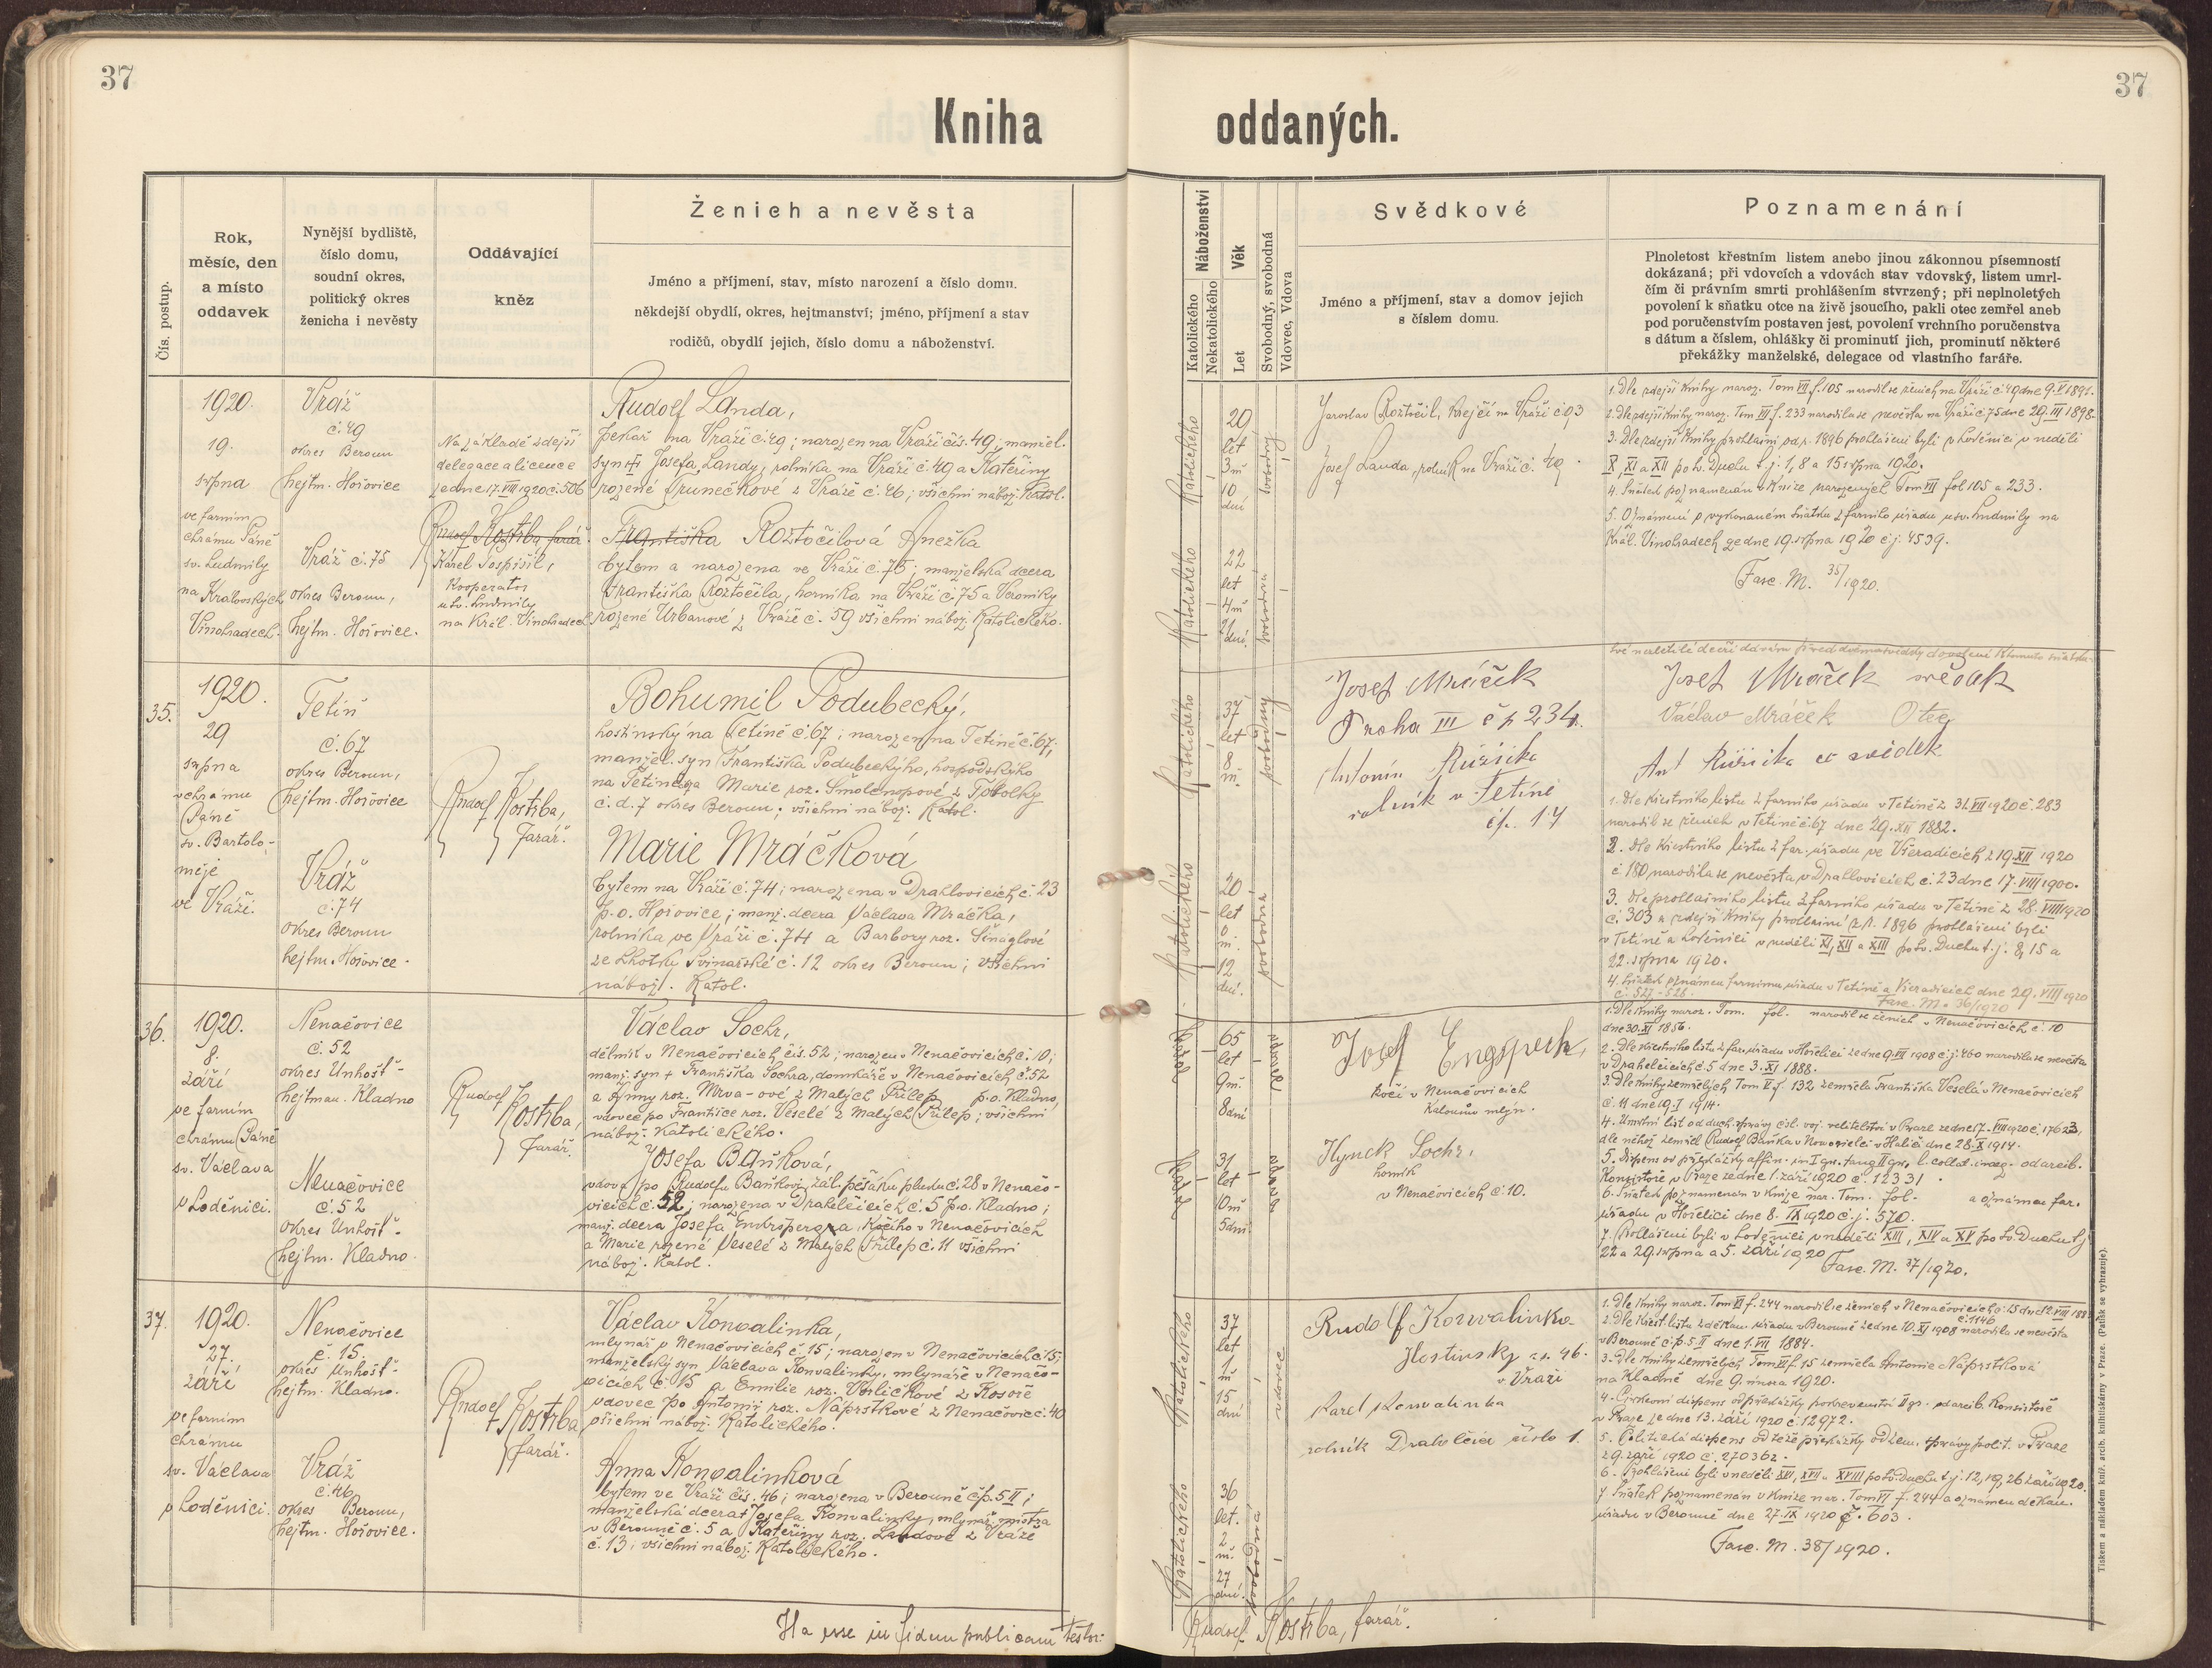 37
37
Kniha oddaných.
Čís. postup.
Rok,
měsíc, den
a místo
oddavek
Nynější bydliště,
číslo domu,
soudní okres,
politický okres
ženicha i nevěsty
Oddávající
kněz
Ženich a nevěsta
Jméno a příjmení, stav, místo narození a číslo domu.
někdejší obydlí, okres, hejtmanství; jméno, příjmení a stav
rodičů, obydlí jejich, číslo domu a náboženství.
Náboženství
Katolického
Nekatolického
Věk
Let
Svobodný, svobodná
Vdovec, Vdova
Svědkové
Jméno a příjmení, stav a domov jejich
s číslem domu.
Poznamenání
Plnoletost křestním listem anebo jinou zákonnou písemností
dokázaná; při vdovcích a vdovách stav vdovský, listem umrl-
čím či právním smrti prohlášením stvrzený; při neplnoletých
povolení k sňatku otce na živě jsoucího, pakli otec zemřel aneb
pod poručenstvím postaven jest, povolení vrchního poručenstva
s dátum a číslem, ohlášky či prominutí jich, prominutí některé
překážky manželské, delegace od vlastního faráře.
1920.
19.
srpna
ve farním
chrámu Páně
sv. Ludmily
na Královských
Vinohradech.
Vráž
č. 49
okres Beroun
hejtm. Hořovice
Vráž č. 75
okres Beroun,
hejtm. Hořovice.
Na základě zdejší
delegace a licence
ze dne 17. VIII 1920 č. 506
Rudolf Kostrba, farář.
Karel Pospíšil,
kooperator
u sv. Ludmily
na Král. Vinohradech
Rudolf Landa,
pekař na Vráži č. 49; narozen na Vráži čís. 49; manžel.
syn † Josefa Landy, rolníka na Vráži č. 49 a Kateřiny
rozené Prunečkové z Vráže č. 26; všichni nábož. katol.
Františka Roztočilová Anežka
bytem a narozena ve Vráži č. 75; manželská dcera
Františka Roztočila, horníka na Vráži č. 75 a Veroniky
rozené Urbanové z Vráže č. 59 všichni nábož. katolického.
Katolického
20
let
3 m
10
dní
svobodný
Katolického
22
let
4 m
21
dní
svobodná
Jaroslav Roztočil, krejčí na Vráži č. 93
Josef Landa, rolník na Vráži č. 49.
1. Dle zdejší knihy naroz. Tom VII f. 105 narodil se ženich na Vráži č. 49 dne 9. V 1891.
2. Dle zdejší knihy naroz. Tom VII f. 233 narodila se nevěsta na Vráži č. 75 dne 29. III 1898.
3. Dle zdejší knihy prohlášní od r. 1896 prohlášeni byli v Loděnici v neděli
X, XI a XII po sv. Duchu t. j. 1, 8 a 15 srpna 1920.
4. Sňatek poznamenán v knize narozených Tom VII fol 105 a 233.
5. Oznámení o vykonaném sňatku z farního úřadu u sv. Ludmily na
Král. Vinohradech ze dne 19. srpna 1920 č. j. 4539.
Fasc. M. 35/1920.
35.
1920.
29
srpna
v chrámu
Páně
sv. Bartolo-
měje
ve Vráži.
Tetín
č. 67
okres Beroun,
hejtm. Hořovice
Vráž
č. 74
okres Beroun
hejtm. Hořovice.
Rudolf Kostrba,
farář.
Bohumil Podubecký,
hostinský na Tetíně č. 67; narozen na Tetíně č. 67;
manžel. syn Františka Podubeckýho, hospodského
na Tetíně a Marie roz. Šmolcnopové z Tobolky
č. d. 7 okres Beroun; všichni nábož. katol.
Marie Mráčková
bytem na Vráži č. 74; narozena v Drahlovicích č. 23
p. o. Hořovice; manž. dcera Václava Mráčka,
rolníka ve Vráži č. 74 a Barbory roz. Šnáglové
ze Lhotky Svinařské č. 12 okres Beroun; všichni
nábož. katol.
Katolického
37
let
8
m.
svobodný
Katolického
20
let
0
m.
12
dní.
svobodná
Josef Mráček
Praha III čp 234.
Antonín Růžička
rolník v Tetíně
čp. 17
své nezletilé dceři dávám před dvěma svědky dovolení k tomuto sňatku
Josef Mráček svědek
Václav Mráček Otec
Ant Růžička co svědek
1. Dle křestního listu z farního úřadu v Tetíně z 31. VII 1920 č. 283
narodil se ženich v Tetíně č. 67 dne 29. XII 1882.
2. Dle křestního listu z far. úřadu ve Všeradicích z 19. XII 1920
č 180, narodila se nevěsta v Drahlovicích č. 23 dne 17. VIII 1900.
3. Dle prohlašního listu z farního úřadu v Tetíně z 28. VIII 1920
č. 303 a zdejší knihy prohlášní z r. 1896 prohlášeni byli
v Tetíně a Loděnici v neděli XI, XII a XIII po sv. Duchu t. j. 8, 15 a
22. srpna 1920.
4. Sňatek oznámen farnímu úřadu v Tetíně a Všeradicích dne 29. VIII 1920
č. 527-528.
Fasc. M. 36/1920
36.
1920.
8.
září
ve farním
chrámu Páně
sv. Václava
v Loděnici.
Nenačovice
č. 52
okres Unhošť-
hejtman. Kladno
Nenačovice
č. 52
okres Unhošť-
hejtm. Kladno.
Rudolf Kostrba,
farář.
Václav Sochr,
dělník v Nenačovicích čís. 52; narozen v Nenačovicích č. 10;
manž. syn † Františka Sochra, domkáře v Nenačovicích č. 52
a Anny roz. Mrva-ové z Malých Přílep p. o. Kladno,
vdovec po Františce roz. Veselé z Malých Přílep; všichni
nábož. katolického.
Josefa Bařková,
vdova po Rudolfu Bařkovi, zál. pěšáku pluku č. 28 v Nenačo-
vicích č. 52; narozena v Drahelčicích č. 5 p. o. Kladno;
manž. dcera Josefa Enkrspergra, kočího v Nenačovicích
a Marie rozené Veselé z Malých Přílep č. 11 všichni
nábož. katol.
65
let
9 m.
8 dní
vdovec
31
let
10 m
5 dní
vdova
Josef Engspech,
kočí v Nenačovicích
Kalounův mlýn.
Hynek Sochr,
horník
v Nenačovicích č. 10.
1. Dle knihy naroz. Tom. fol. narodil se ženich v Nenačovicích č. 10
dne 30. XI 1856.
2. Dle křestního listu z far. úřadu v Hořelici ze dne 9. VII 1908 č. j. 460 narodila se nevěsta
v Drahelčicích č. 5 dne 3. XI 1888.
3. Dle knihy zemřelých Tom V f. 132 zemřela Františka Veselá v Nenačovicích
č. 11 dne 19. I 1914.
4. Úmrtní list od duch. správy čsl. voj. velitelství v Praze ze dne 17. VIII 1920 č. 17623,
dle něhož zemřel Rudolf Bařka v Nowosielci v Haliči dne 28. X 1914.
5. Dispens od překážky affin. in I gr. tang. II gr. l. collat. inaeq. od arcib.
Konsistoře v Praze ze dne 1. září 1920 č. 12331.
6. Sňatek poznamenán v knize nar. Tom. fol. a oznámen far.
úřadu v Hořelici dne 8. IX 1920 č. j. 570.
7. Prohlášeni byli v Loděnici v neděli XIII, XIV a XV po sv. Duchu t. j.
22 a 29. srpna a 5. září 1920
Fasc. M. 37/1920.
37.
1920.
27.
září
ve farním
chrámu
sv. Václava
v Loděnici.
Nenačovice
č. 15.
okres Unhošť-
hejtm. Kladno.
Vráž
č. 46,
okres Beroun,
hejtm. Hořovice.
Rudolf Kostrba
farář.
Václav Konvalinka,
mlynář v Nenačovicích č. 15; narozen v Nenačovicích č. 15;
manželský syn Václava Konvalinky, mlynáře v Nenačo-
vicích č. 15 a Emilie roz. Vorlíčkové z Kosoře
vdovec po Antonii roz. Náprstkové z Nenačovic č. 40
všichni nábož. katolického.
Anna Konvalinková
bytem ve Vráži čís. 46; narozena v Berouně čp. 5 II;
manželská dcera † Josefa Konvalinky, mlynář. mistra
v Berouně č. 5 a Kateřiny roz. Landové z Vráže
č. 13; všichni nábož. katolického.
Katolického
37
let
1
m
15
dní
vdovec
Katolického
36
let.
2
m.
27
dní.
svobodná
Rudolf Konvalinka
Hostinský č. 46.
v Vráži
Karel Konvalinka
rolník Drahelčice číslo 1.
1. Dle knihy naroz. Tom VI f. 244 narodil se ženich v Nenačovicích č. 15 dne 12. VIII 188
2. Dle křest. listu z děkan. úřadu v Berouně ze dne 10. XI 1908 č. 1146 narodila se nevěsta
v Berouně č. p. 5 II dne 1. VII 1884.
3. Dle knihy zemřelých Tom VI f. 15 zemřela Antonie Náprstková
na Kladně dne 9. února 1920.
4. Církevní dispens od překážky pokrevenství II gr. od arcib. Konsistoře
v Praze ze dne 13. září 1920 č. 12972.
5. Politická dispens od téže překážky od zem. správy polit. v Praze
z 9. září 1920 č. 270362.
6. Prohlášeni byli v neděli XVI, XVII a XVIII po sv. Duchu t. j. 12, 19, 26 září 1920.
7. Sňatek poznamenán v knize nar. Tom VI f. 244 a oznámen děkan.
úřadu v Berouně dne 27. IX 1920 č. 603.
Fasc. M. 38/1920.
Ita esse in fidem publicam testor:
Rudolf Kostrba, farář.
Tiskem a nákladem kníž. arcib. knihtiskárny v Praze. (Patisk se vyhrazuje).